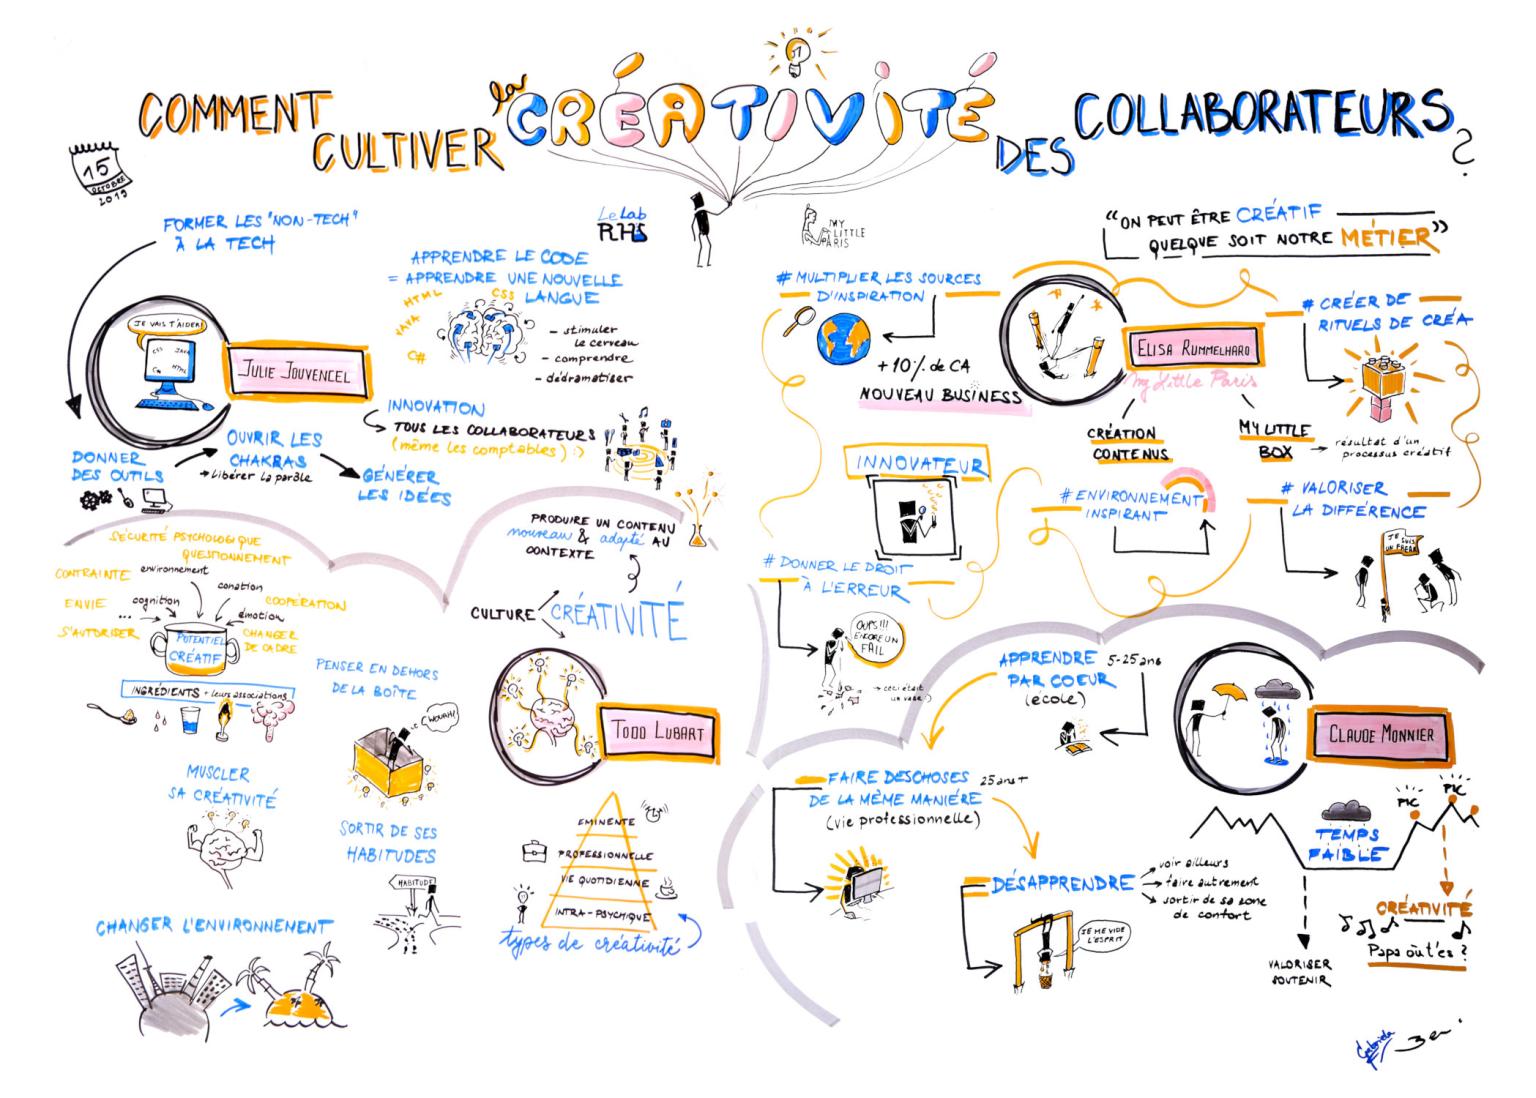 COMMENT
CULTIVER
la
CRÉATIVITÉ
DES
COLLABORATEURS ?
15
OCTOBRE
2019
Le Lab
RHS
MY
LITTLE
PARIS
FORMER LES "NON-TECH"
À LA TECH
JE VAIS T'AIDER!
CSS JAVA
C# HTML
JULIE JOUVENCEL
APPRENDRE LE CODE
= APPRENDRE UNE NOUVELLE
LANGUE
HTML
CSS
JAVA
C#
- stimuler
le cerveau
- comprendre
- dédramatiser
INNOVATION
TOUS LES COLLABORATEURS
(même les comptables) :)
DONNER
DES OUTILS
OUVRIR LES
CHAKRAS
→ Libérer la parole
GÉNÉRER
LES IDÉES
SÉCURITÉ PSYCHOLOGIQUE
QUESTIONNEMENT
CONTRAINTE
environnement
conation
ENVIE
cognition
COOPÉRATION
...
émotion
S'AUTORISER
CHANGER
DE CADRE
POTENTIEL
CRÉATIF
INGRÉDIENTS + leurs associations !
PENSER EN DEHORS
DE LA BOÎTE
WOUAH!
MUSCLER
SA CRÉATIVITÉ
SORTIR DE SES
HABITUDES
HABITUDE
CHANGER L'ENVIRONNEMENT
PRODUIRE UN CONTENU
nouveau & adapté AU
CONTEXTE
CULTURE
CRÉATIVITÉ
TODD LUBART
EMINENTE
PROFESSIONNELLE
VIE QUOTIDIENNE
INTRA-PSYCHIQUE
types de créativité
"ON PEUT ÊTRE CRÉATIF
QUELQUE SOIT NOTRE MÉTIER"
# MULTIPLIER LES SOURCES
D'INSPIRATION
+10% de CA
NOUVEAU BUSINESS
ELISA RUMMELHARD
My Little Paris
CRÉATION
CONTENUS
MY LITTLE
BOX
→ résultat d'un
processus créatif
# CRÉER DE
RITUELS DE CRÉA
INNOVATEUR
# ENVIRONNEMENT
INSPIRANT
# VALORISER
LA DIFFÉRENCE
JE SUIS
UN FREAK
# DONNER LE DROIT
À L'ERREUR
OUPS!!!
ENCORE UN
FAIL
→ ceci était
un vase :)
APPRENDRE
PAR COEUR
(école)
5-25 ans
CLAUDE MONNIER
FAIRE DES CHOSES
DE LA MÊME MANIÈRE
(vie professionnelle)
25 ans +
DÉSAPPRENDRE
→ voir ailleurs
→ faire autrement
→ sortir de sa zone
de confort
JE ME VIDE
L'ESPRIT
PIC
PIC
TEMPS
FAIBLE
VALORISER
SOUTENIR
CRÉATIVITÉ
Papa où t'es ?
Gabriela